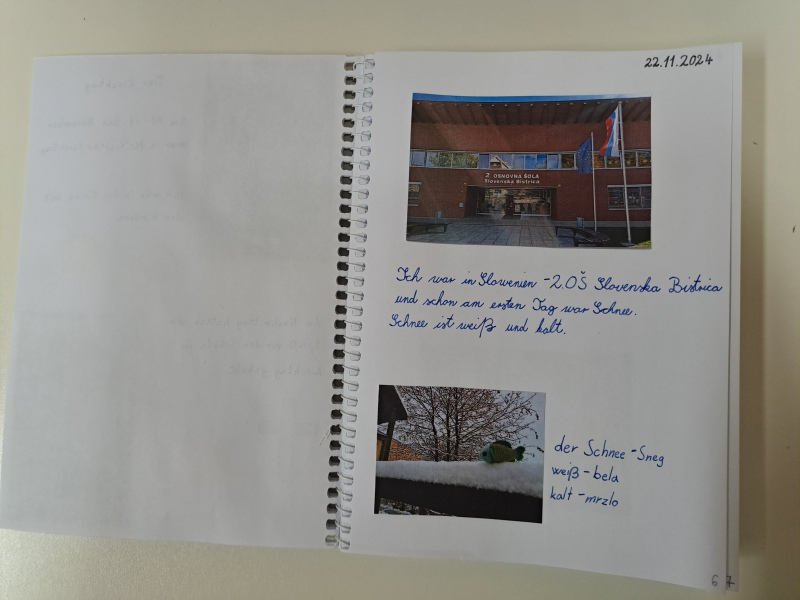 22.11.2024
2. OSNOVNA ŠOLA
Slovenska Bistrica
Ich war in Slowenien - 2.OŠ Slovenska Bistrica
und schon am ersten Tag war Schnee.
Schnee ist weiß und kalt.
der Schnee - Sneg
weiß - bela
kalt - mrzlo
6 7